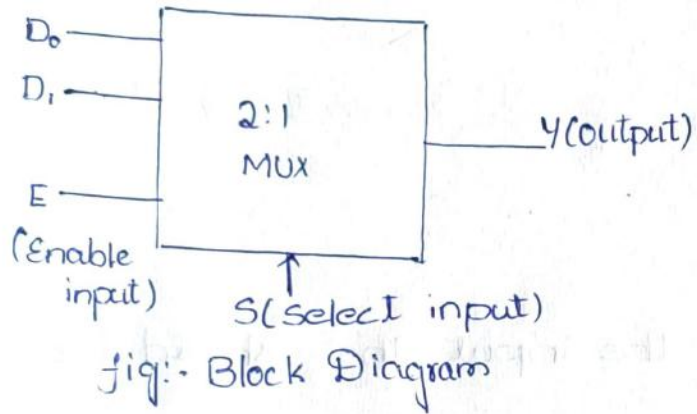 D₀
D₁
2:1
MUX
Y(output)
E
(Enable
input)
S(select input)
fig:- Block Diagram